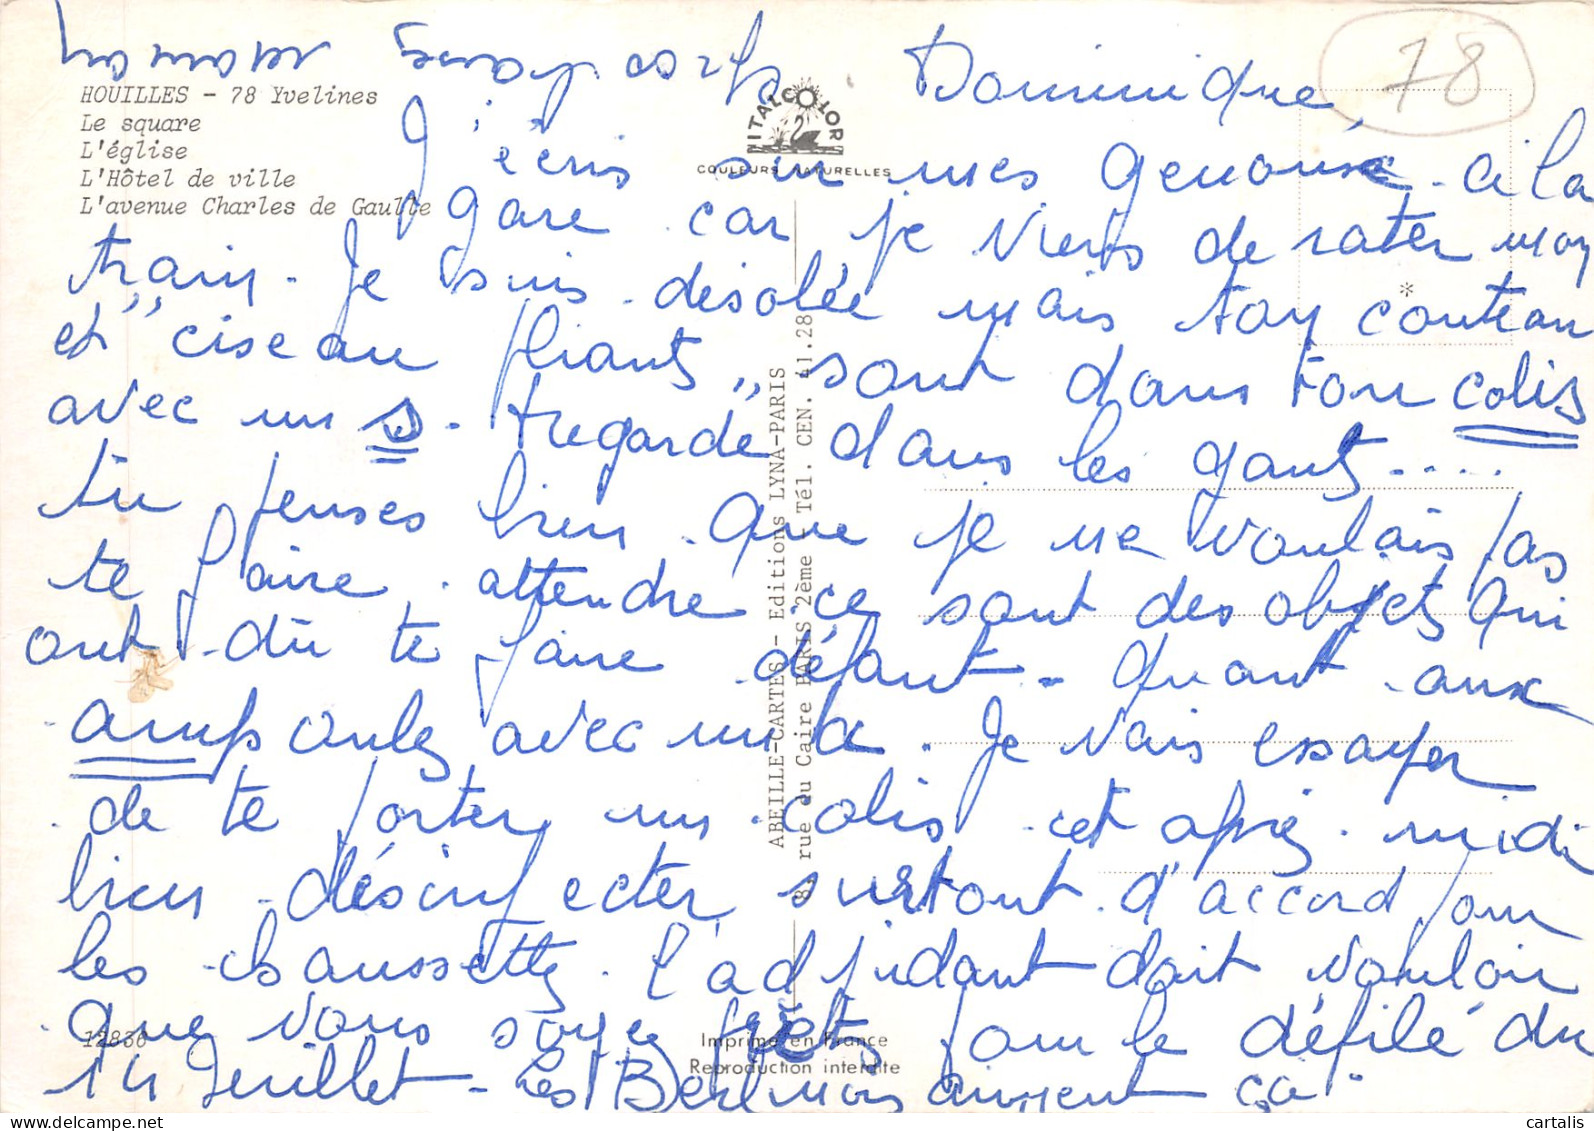 Dominique,
78
HOUILLES - 78 Yvelines
Le square
L'église
L'Hôtel de ville
L'avenue Charles de Gaulle
ITALCOLOR
COULEURS NATURELLES
J'écris sur mes genoux à la
gare car je viens de rater mon
train. Je suis désolée mais ton couteau
et "ciseau pliants" sont dans ton colis
avec un s. regarde dans les gants....
tu penses bien que je ne voulais pas
te faire attendre ce sont des objets qui
ont dû te faire défaut. Quant aux
ampoules avec un a. Je vais essayer
de te porter un colis cet après-midi
bien désinfecter surtout d'accord pour
les chaussettes. L'adjudant doit vouloir
que vous soyez prêts pour le défilé du
14 Juillet - Les aiment ça
ABEILLE-CARTES - Editions LYNA-PARIS
8, rue du Caire PARIS 2ème - Tél. CEN. 41.28
12836
Imprimé en France
Reproduction interdite
*
cartalis